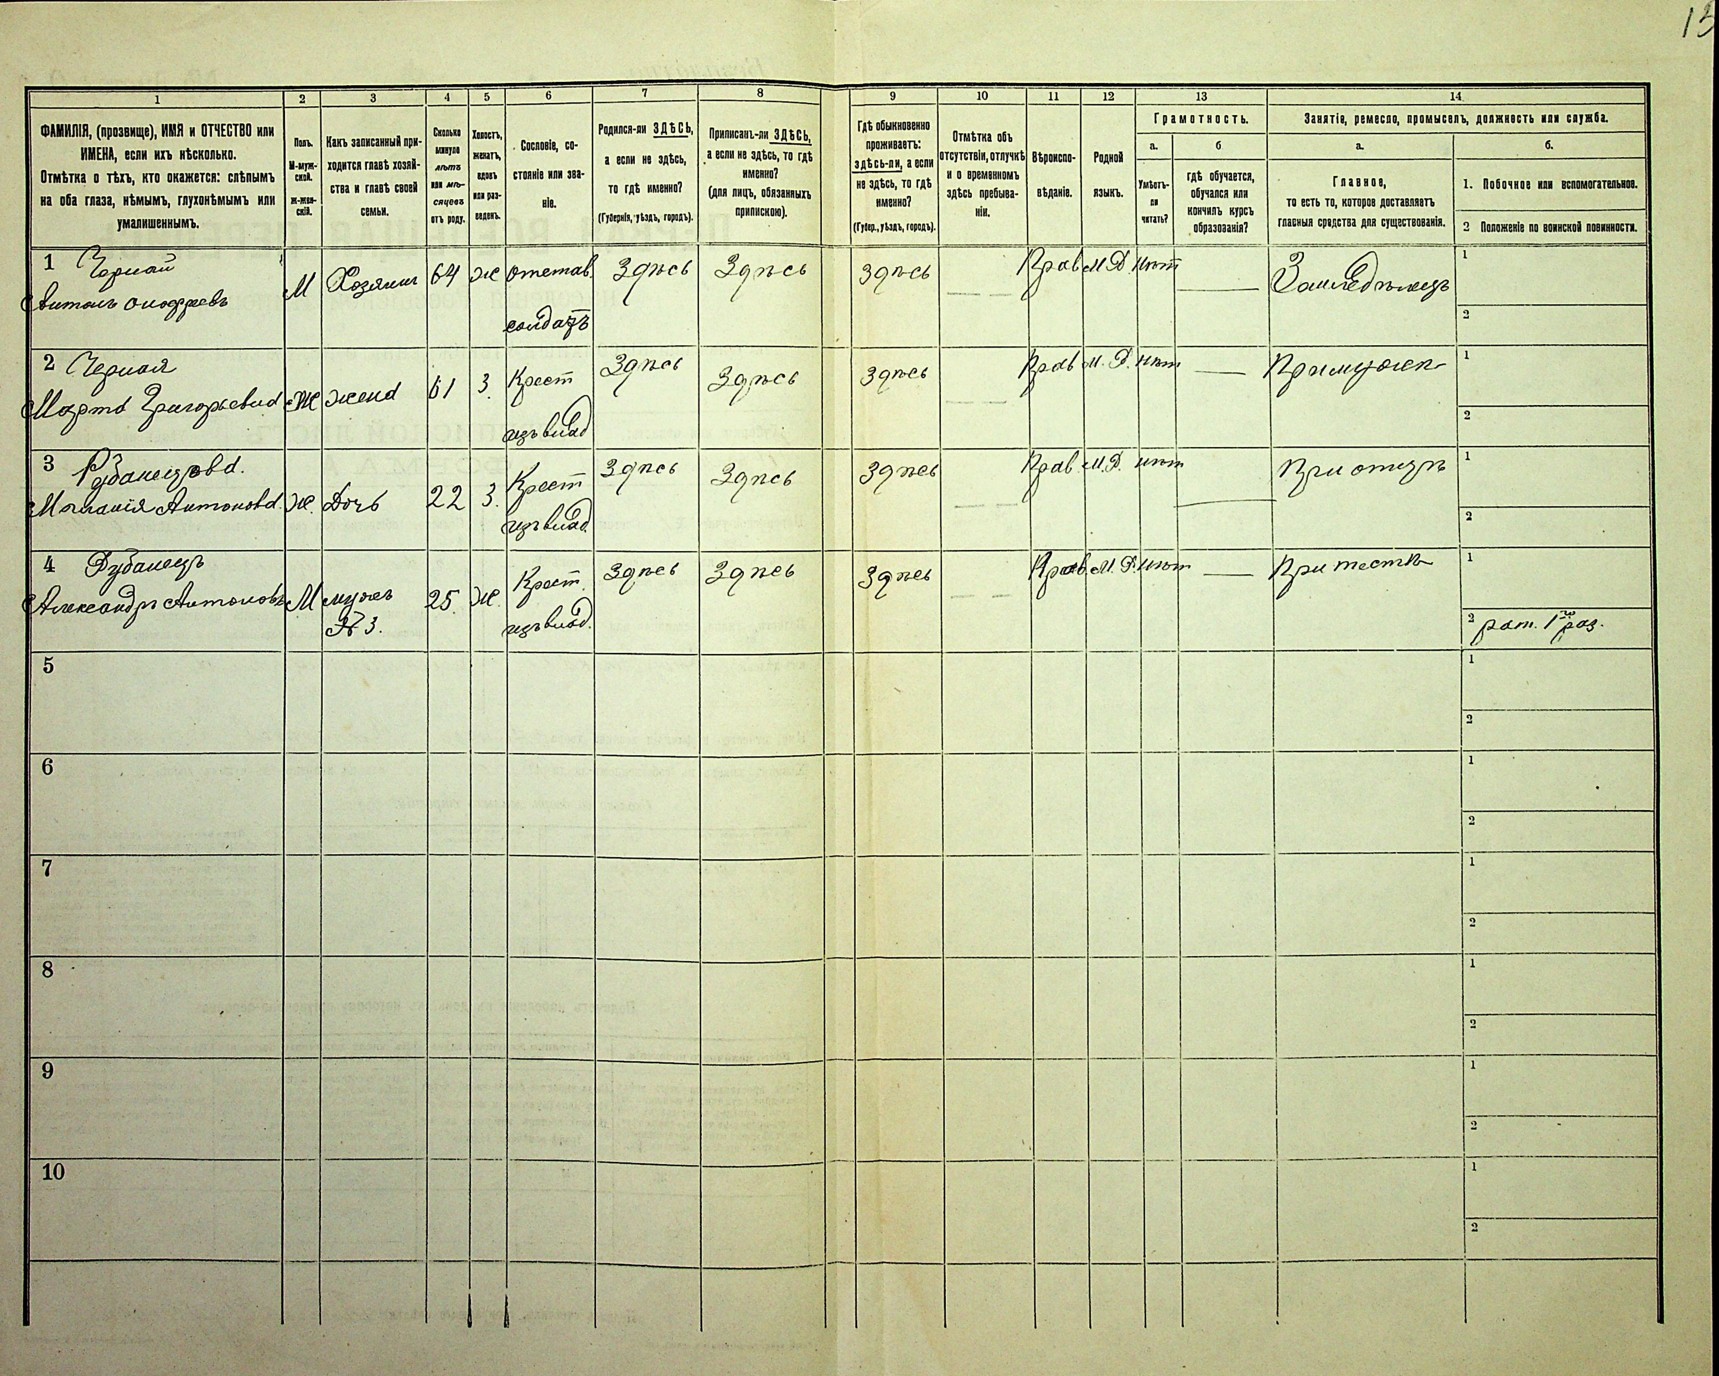 13
1 2 3 4 5 6 7 8 9 10 11 12 13 14
ФАМИЛІЯ, (прозвище), ИМЯ и ОТЧЕСТВО или
ИМЕНА, если ихъ нѣсколько.
Отмѣтка о тѣхъ, кто окажется: слѣпымъ
на оба глаза, нѣмымъ, глухонѣмымъ или
умалишеннымъ.
Полъ.
М-муж-
ской.
ж-жен-
скій.
Какъ записанный при-
ходится главѣ хозяй-
ства и главѣ своей
семьи.
Сколько
минуло
лѣтъ
или мѣ-
сяцевъ
отъ роду.
Холостъ,
женатъ,
вдовъ
или раз-
веденъ.
Сословіе, со-
стояніе или зва-
ніе.
Родился-ли ЗДѢСЬ,
а если не здѣсь,
то гдѣ именно?
(Губернія, уѣздъ, городъ).
Приписанъ-ли ЗДѢСЬ,
а если не здѣсь, то гдѣ
именно?
(для лицъ, обязанныхъ
припискою).
Гдѣ обыкновенно
проживаетъ:
здѣсь-ли, а если
не здѣсь, то гдѣ
именно?
(Губер., уѣздъ, городъ).
Отмѣтка объ
отсутствіи, отлучкѣ
и о временномъ
здѣсь пребыва-
ніи.
Вѣроиспо-
вѣданіе.
Родной
языкъ.
Грамотность.
а.
Умѣетъ-
ли
читать?
б
гдѣ обучается,
обучался или
кончилъ курсъ
образованія?
Занятіе, ремесло, промыселъ, должность или служба.
а.
Главное,
то есть то, которое доставляетъ
главныя средства для существованія.
б.
1. Побочное или вспомогательное.
2 Положеніе по воинской повинности.
1 Черный
Антонъ Онофреевъ
М Хозяинъ 64 Ж отстав.
солдатъ
Здѣсь Здѣсь Здѣсь — — Прав М.Р. нѣт — Земледѣлецъ
1
2
2 Черная
Марта Григорьевна
Ж жена 61 З. Крест
изъ влад
Здѣсь Здѣсь Здѣсь — — Прав М.Р. нѣт — При мужѣ
1
2
3 Рубанецова.
Маланія Антонова.
Ж. Дочь 22 З. Крест
изъ влад.
Здѣсь Здѣсь Здѣсь — — Прав М.Р. нѣт — При отцѣ
1
2
4 Рубанецъ
Александръ Антоновъ
М мужъ
№ 3.
25. Ж. Крест.
изъ влад.
Здѣсь Здѣсь Здѣсь — — Прав. М.Р. нѣт — При тестѣ
1
2 рат. 1го раз.
5
1
2
6
1
2
7
1
2
8
1
2
9
1
2
10
1
2